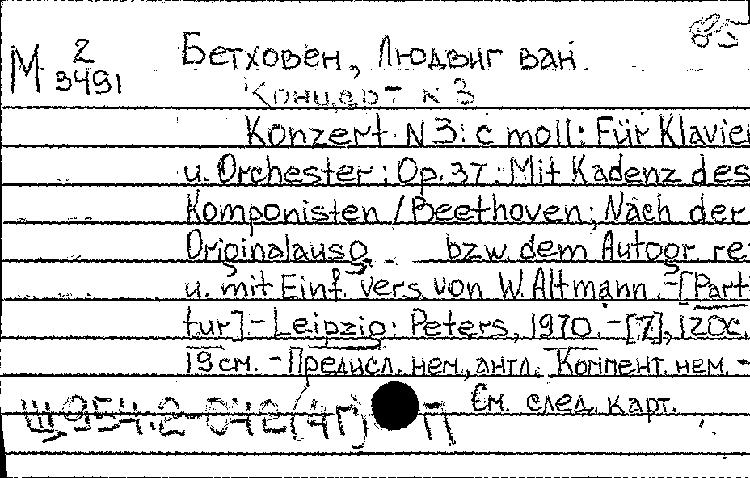 85
М 2
9491
Бетховен, Людвиг ван
Концерт N 3
Konzert N 3: c moll: Für Klavier
u. Orchester: Op. 37: Mit Kadenz des
Komponisten / Beethoven; Nach der
Originalausg. bzw. dem Autogr re
u. mit Einf. vers. von W. Altmann. - [Parti
tur]. - Leipzig: Peters, 1970. - [7], 120 c.
19 см. - Предисл. нем., англ. Коммент. нем. -
См. след. карт.
Щ 954.2-042(4Г) П